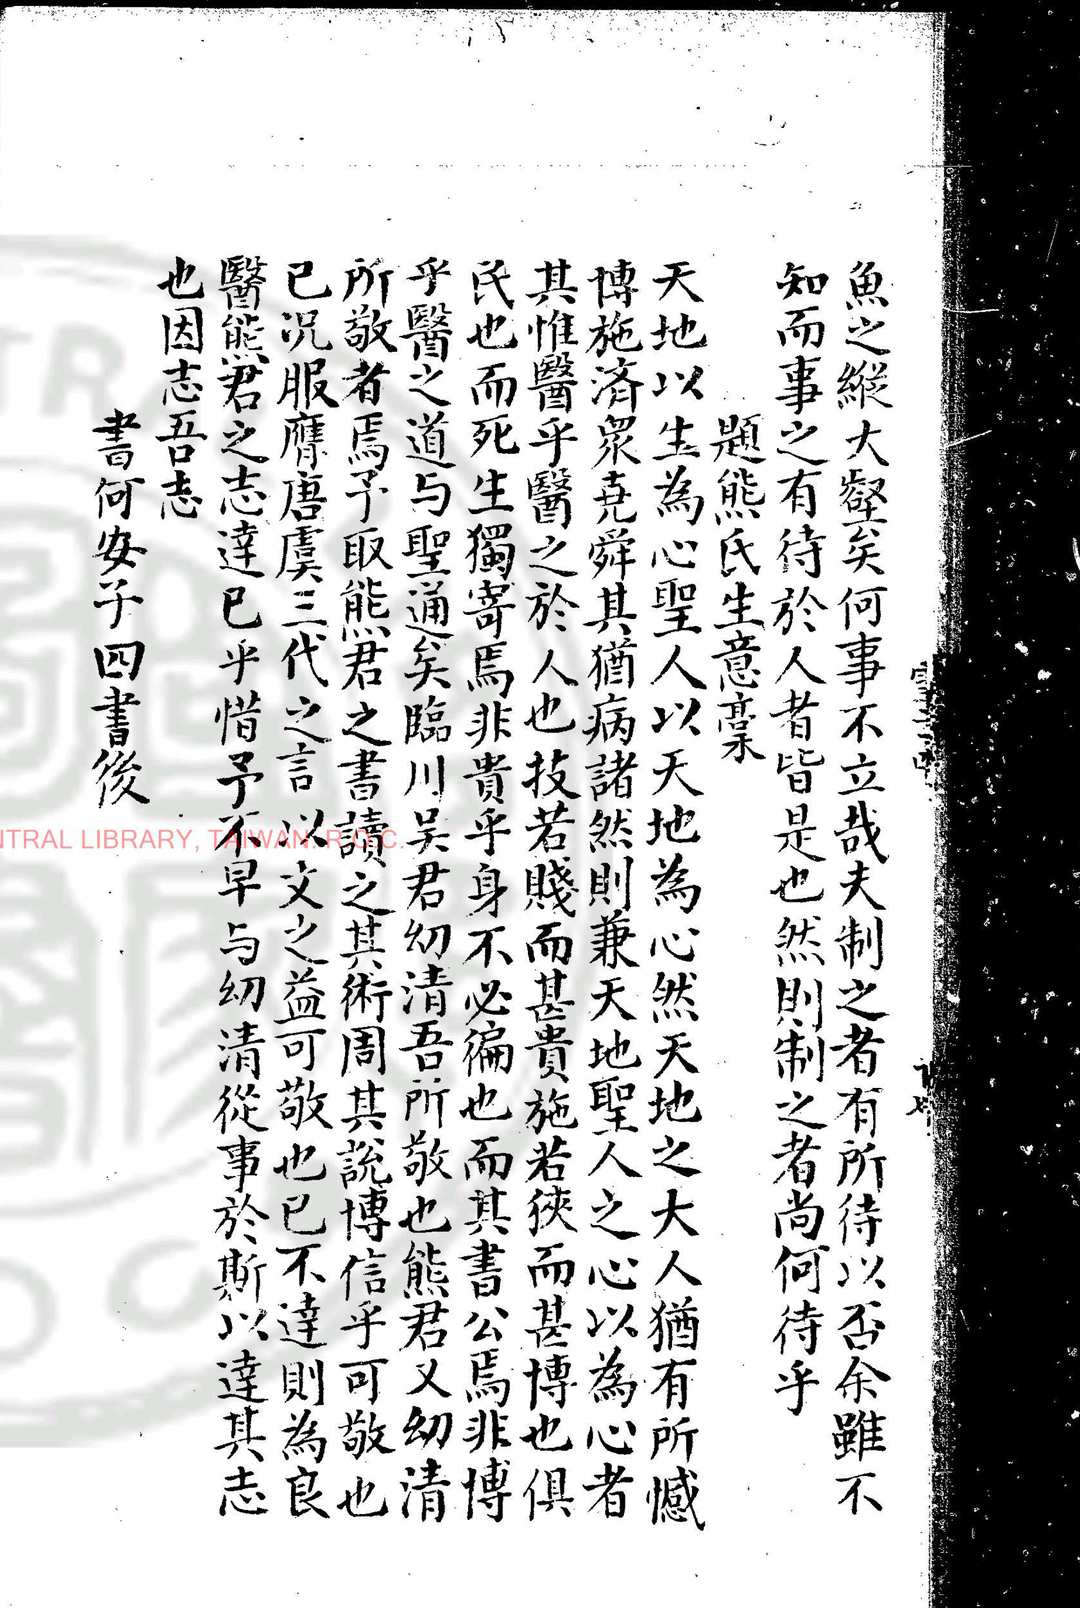 魚之縱大壑矣何事不立哉夫制之者有所待以否余雖不
知而事之有待於人者皆是也然則制之者尚何待乎
題熊氏生意藁
天地以生為心聖人以天地為心然天地之大人猶有所憾
博施済眾堯舜其猶病諸然則兼天地聖人之心以為心者
其惟醫乎醫之於人也技若賤而甚貴施若狹而甚博也俱
民也而死生獨寄焉非貴乎身不必徧也而其書公焉非博
乎醫之道与聖通矣臨川吴君幼清吾所敬也熊君又幼清
所敬者焉予取熊君之書讀之其術周其說博信乎可敬也
已况服膺唐虞三代之言以文之益可敬也已不達則為良
醫熊君之志達已乎惜予不早与幼清從事於斯以達其志
也因志吾志
書何安子四書後
NTRAL LIBRARY, TAIWAN. R.O.C.